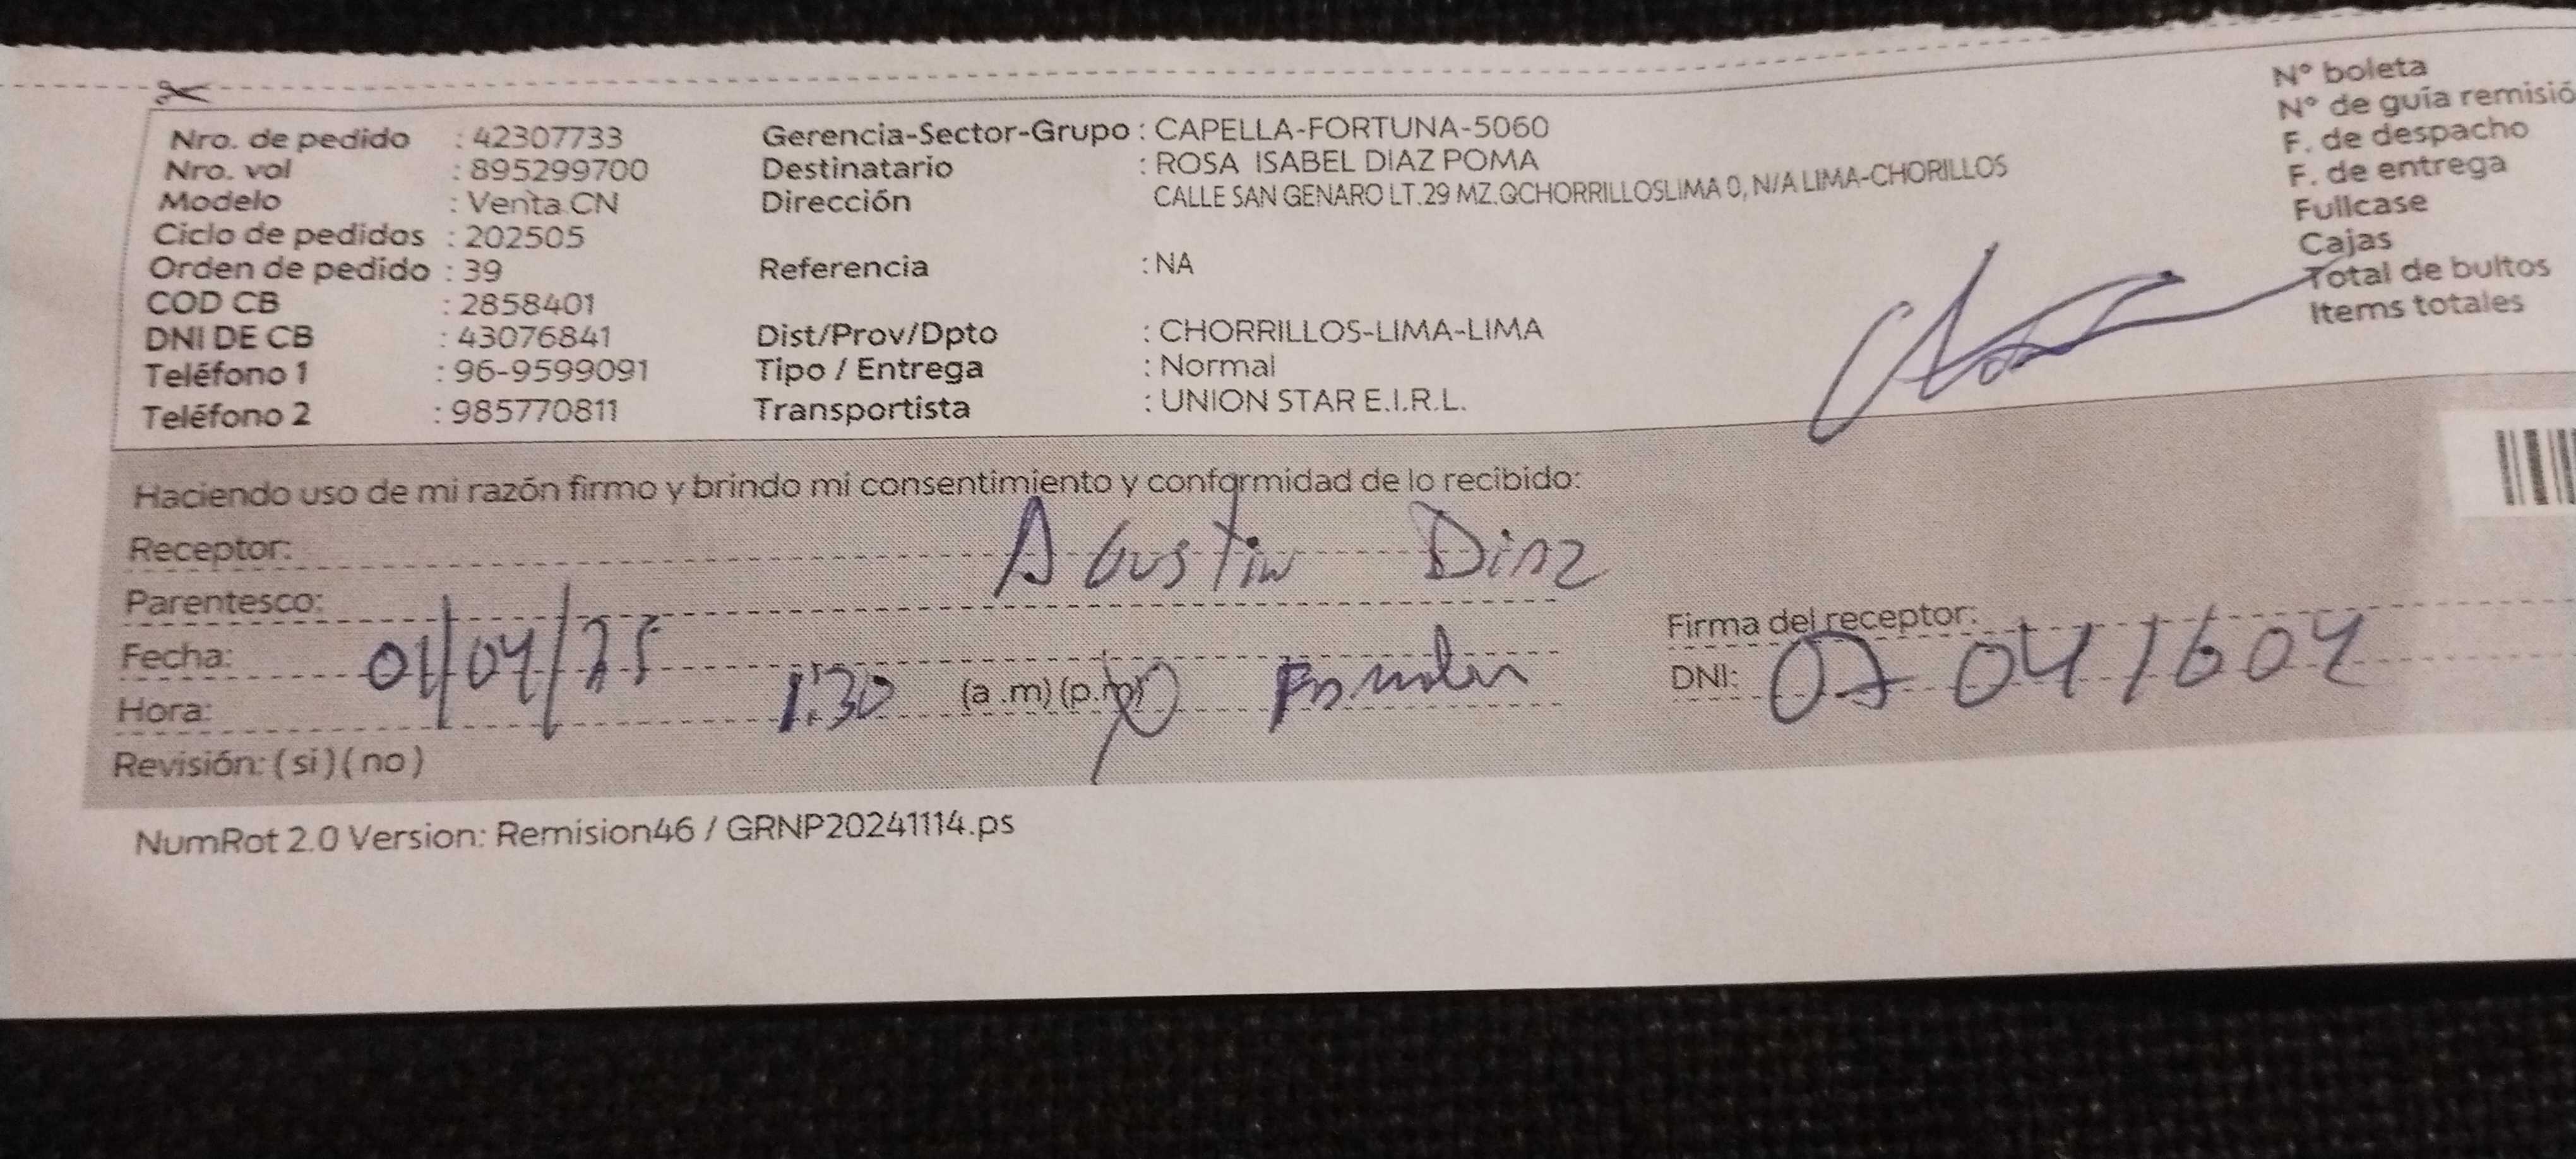 Nro. de pedido : 42307733 Gerencia-Sector-Grupo : CAPELLA-FORTUNA-5060 N° boleta
Nro. vol : 895299700 Destinatario : ROSA ISABEL DIAZ POMA N° de guía remisió
Modelo : Venta CN Dirección CALLE SAN GENARO LT.29 MZ.QCHORRILLOSLIMA 0, N/A LIMA-CHORILLOS F. de despacho
Ciclo de pedidos : 202505 F. de entrega
Orden de pedido : 39 Referencia : NA Fullcase
COD CB : 2858401 Cajas
DNI DE CB : 43076841 Dist/Prov/Dpto : CHORRILLOS-LIMA-LIMA Total de bultos
Teléfono 1 : 96-9599091 Tipo / Entrega : Normal Items totales
Teléfono 2 : 985770811 Transportista : UNION STAR E.I.R.L.
Haciendo uso de mi razón firmo y brindo mi consentimiento y conformidad de lo recibido:
Receptor: Agustin Diaz
Parentesco:
Firma del receptor:
Fecha: 01/04/25
Hora: 1:30 (a .m) (p.m)
DNI: 07041604
Revisión: ( si ) ( no )
NumRot 2.0 Version: Remision46 / GRNP20241114.ps